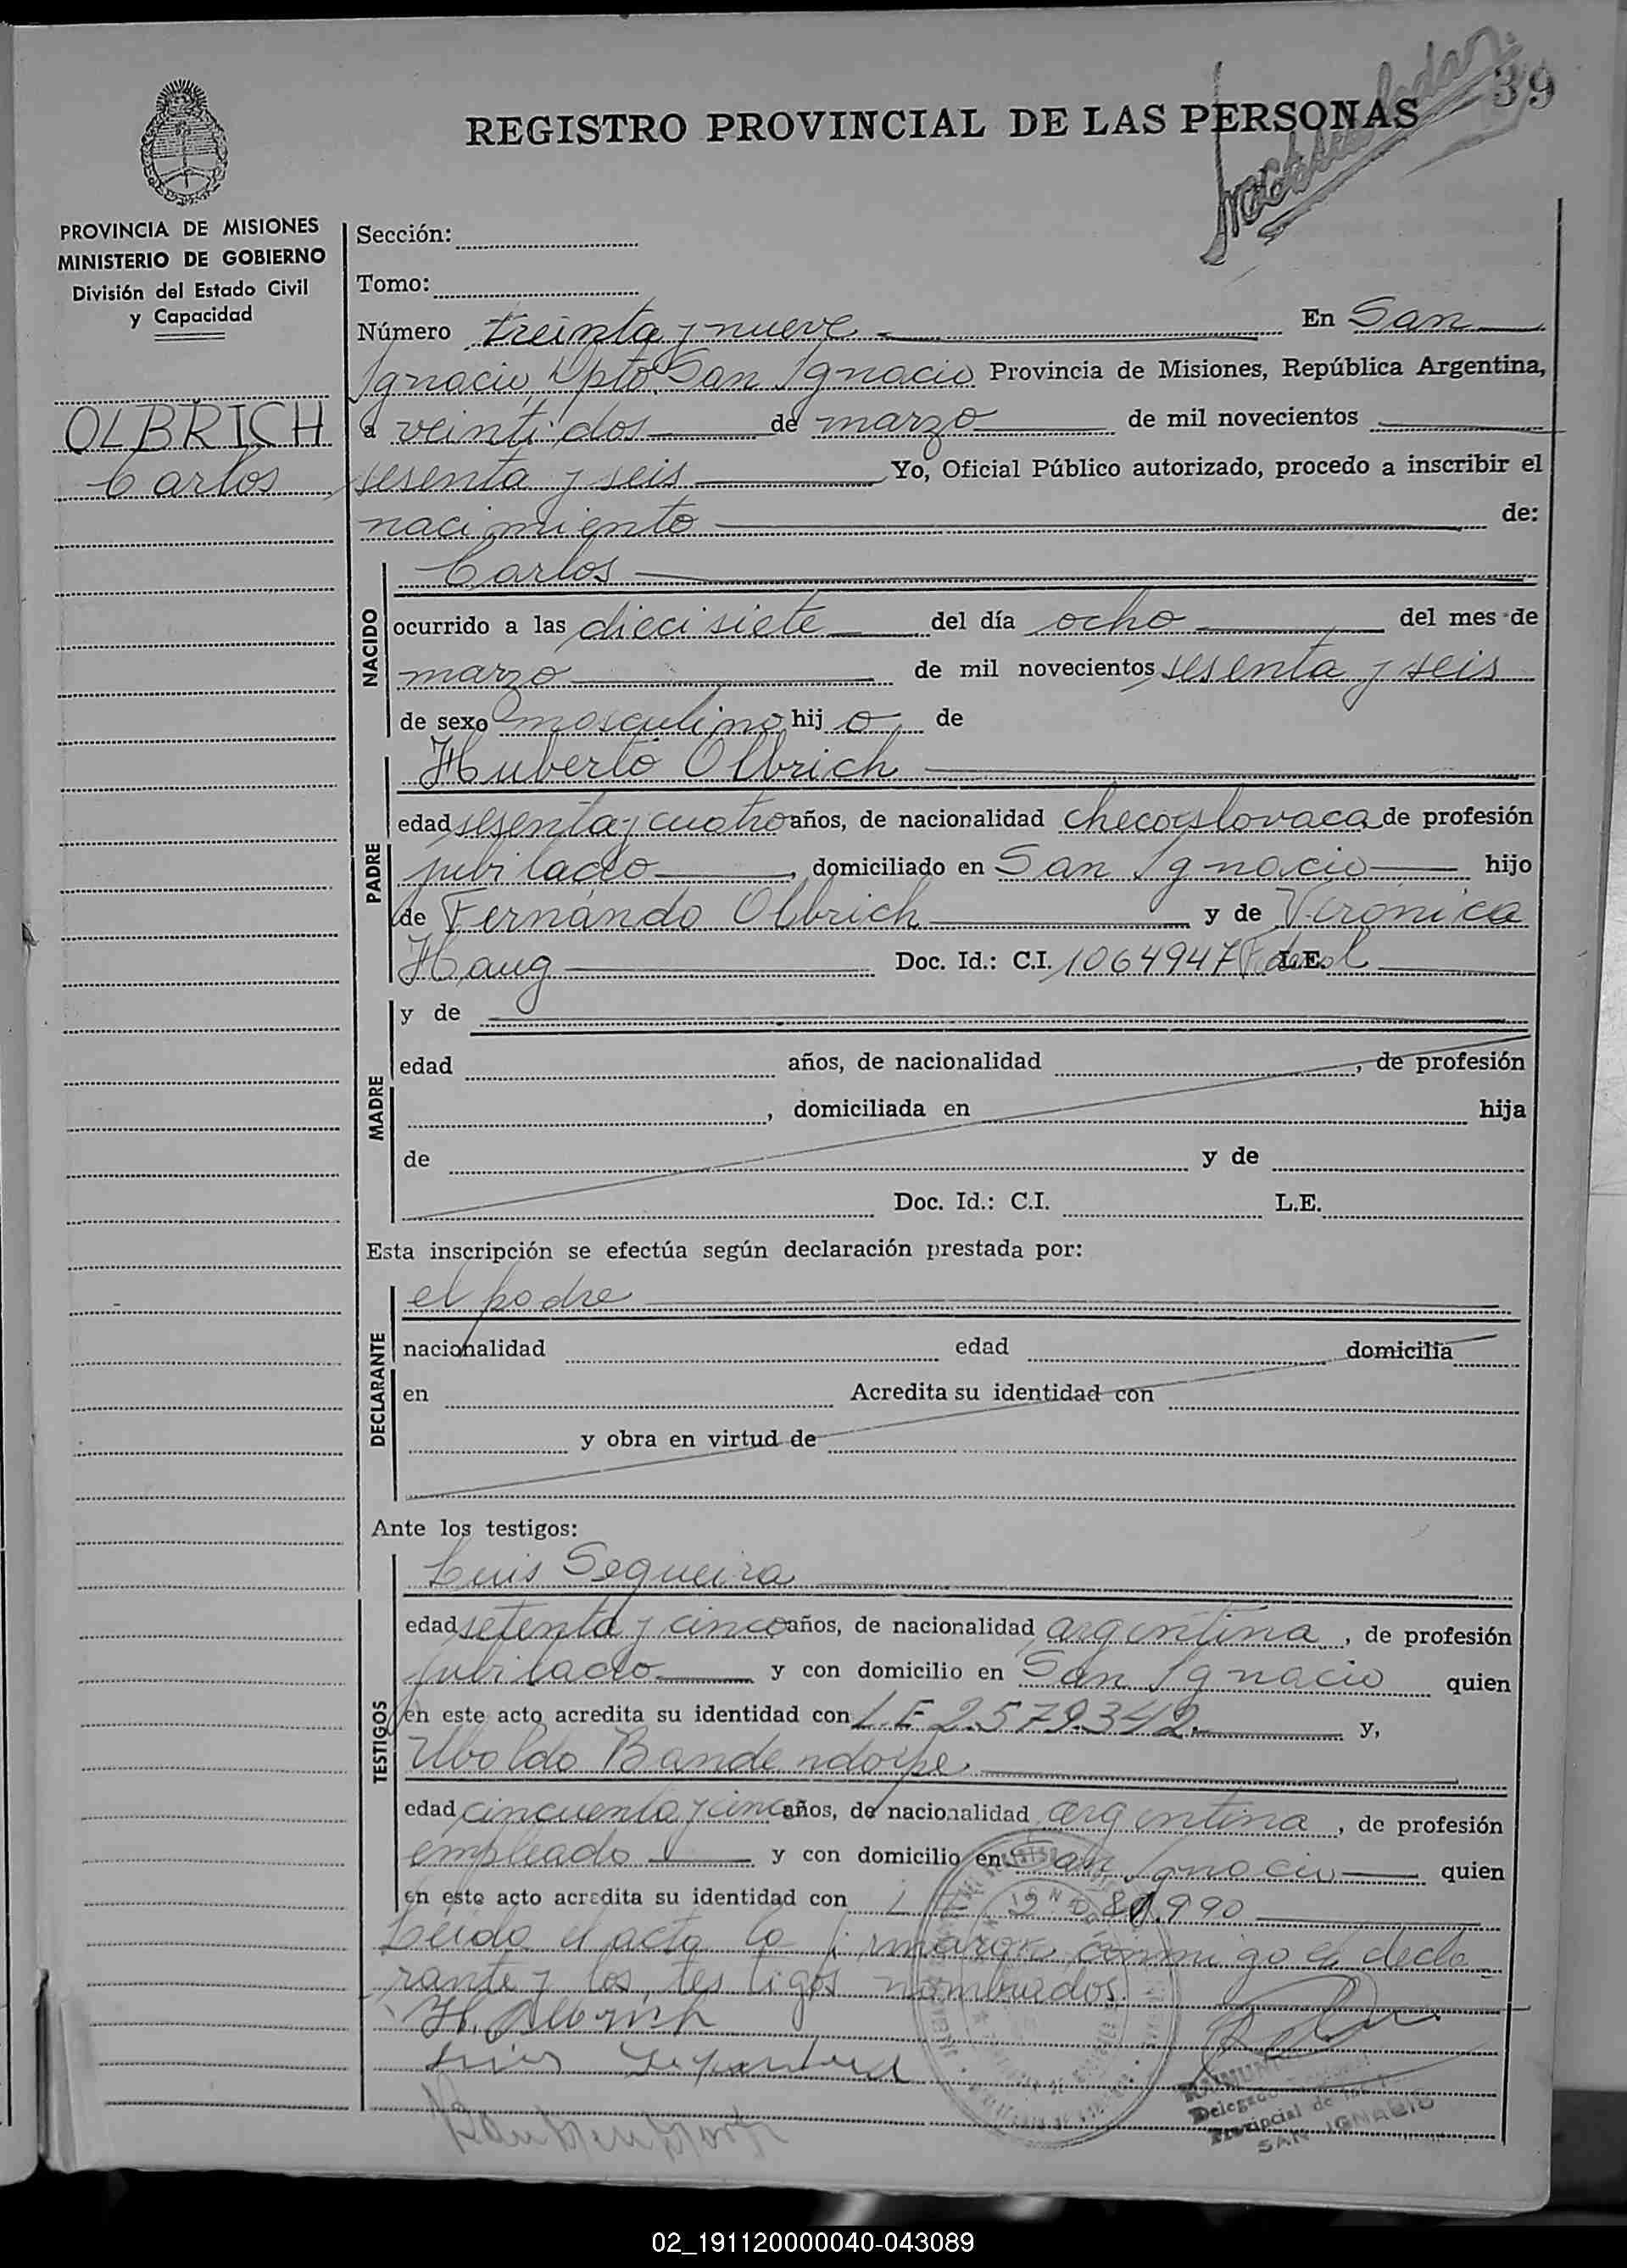 39
REGISTRO PROVINCIAL DE LAS PERSONAS
PROVINCIA DE MISIONES
MINISTERIO DE GOBIERNO
División del Estado Civil
y Capacidad
OLBRICH
Carlos
Sección:
Tomo:
Número treinta y nueve En San
Ignacio, Dpto San Ignacio Provincia de Misiones, República Argentina,
a veintidos de marzo de mil novecientos
sesenta y seis Yo, Oficial Público autorizado, procedo a inscribir el
nacimiento de:
NACIDO
Carlos
ocurrido a las diecisiete del día ocho del mes de
marzo de mil novecientos sesenta y seis
de sexo masculino hij o de
PADRE
Huberto Olbrich
edad sesenta y cuatro años, de nacionalidad checoeslovaca de profesión
jubilado, domiciliado en San Ignacio hijo
de Fernando Olbrich y de Verónica
Haug Doc. Id.: C.I. 1064947 Federal L.E.
MADRE
y de
edad años, de nacionalidad , de profesión
, domiciliada en hija
de y de
Doc. Id.: C.I. L.E.
Esta inscripción se efectúa según declaración prestada por:
DECLARANTE
el padre
nacionalidad edad domicilia
en Acredita su identidad con
y obra en virtud de
Ante los testigos:
TESTIGOS
Luis Sequeira
edad setenta y cinco años, de nacionalidad argentina, de profesión
jubilado y con domicilio en San Ignacio quien
en este acto acredita su identidad con L.E 2.579.342 y,
Uboldo Bandendorpe
edad cincuenta y cinc años, de nacionalidad argentina, de profesión
empleado y con domicilio en San Ignacio quien
en este acto acredita su identidad con L E
Leída el acta la firmaron conmigo el decla-
rante y los testigos nombrados.
H. Olbrich
Luis Sequeira
Delegado
Provincial de las
SAN IGNACIO
02_191120000040-043089